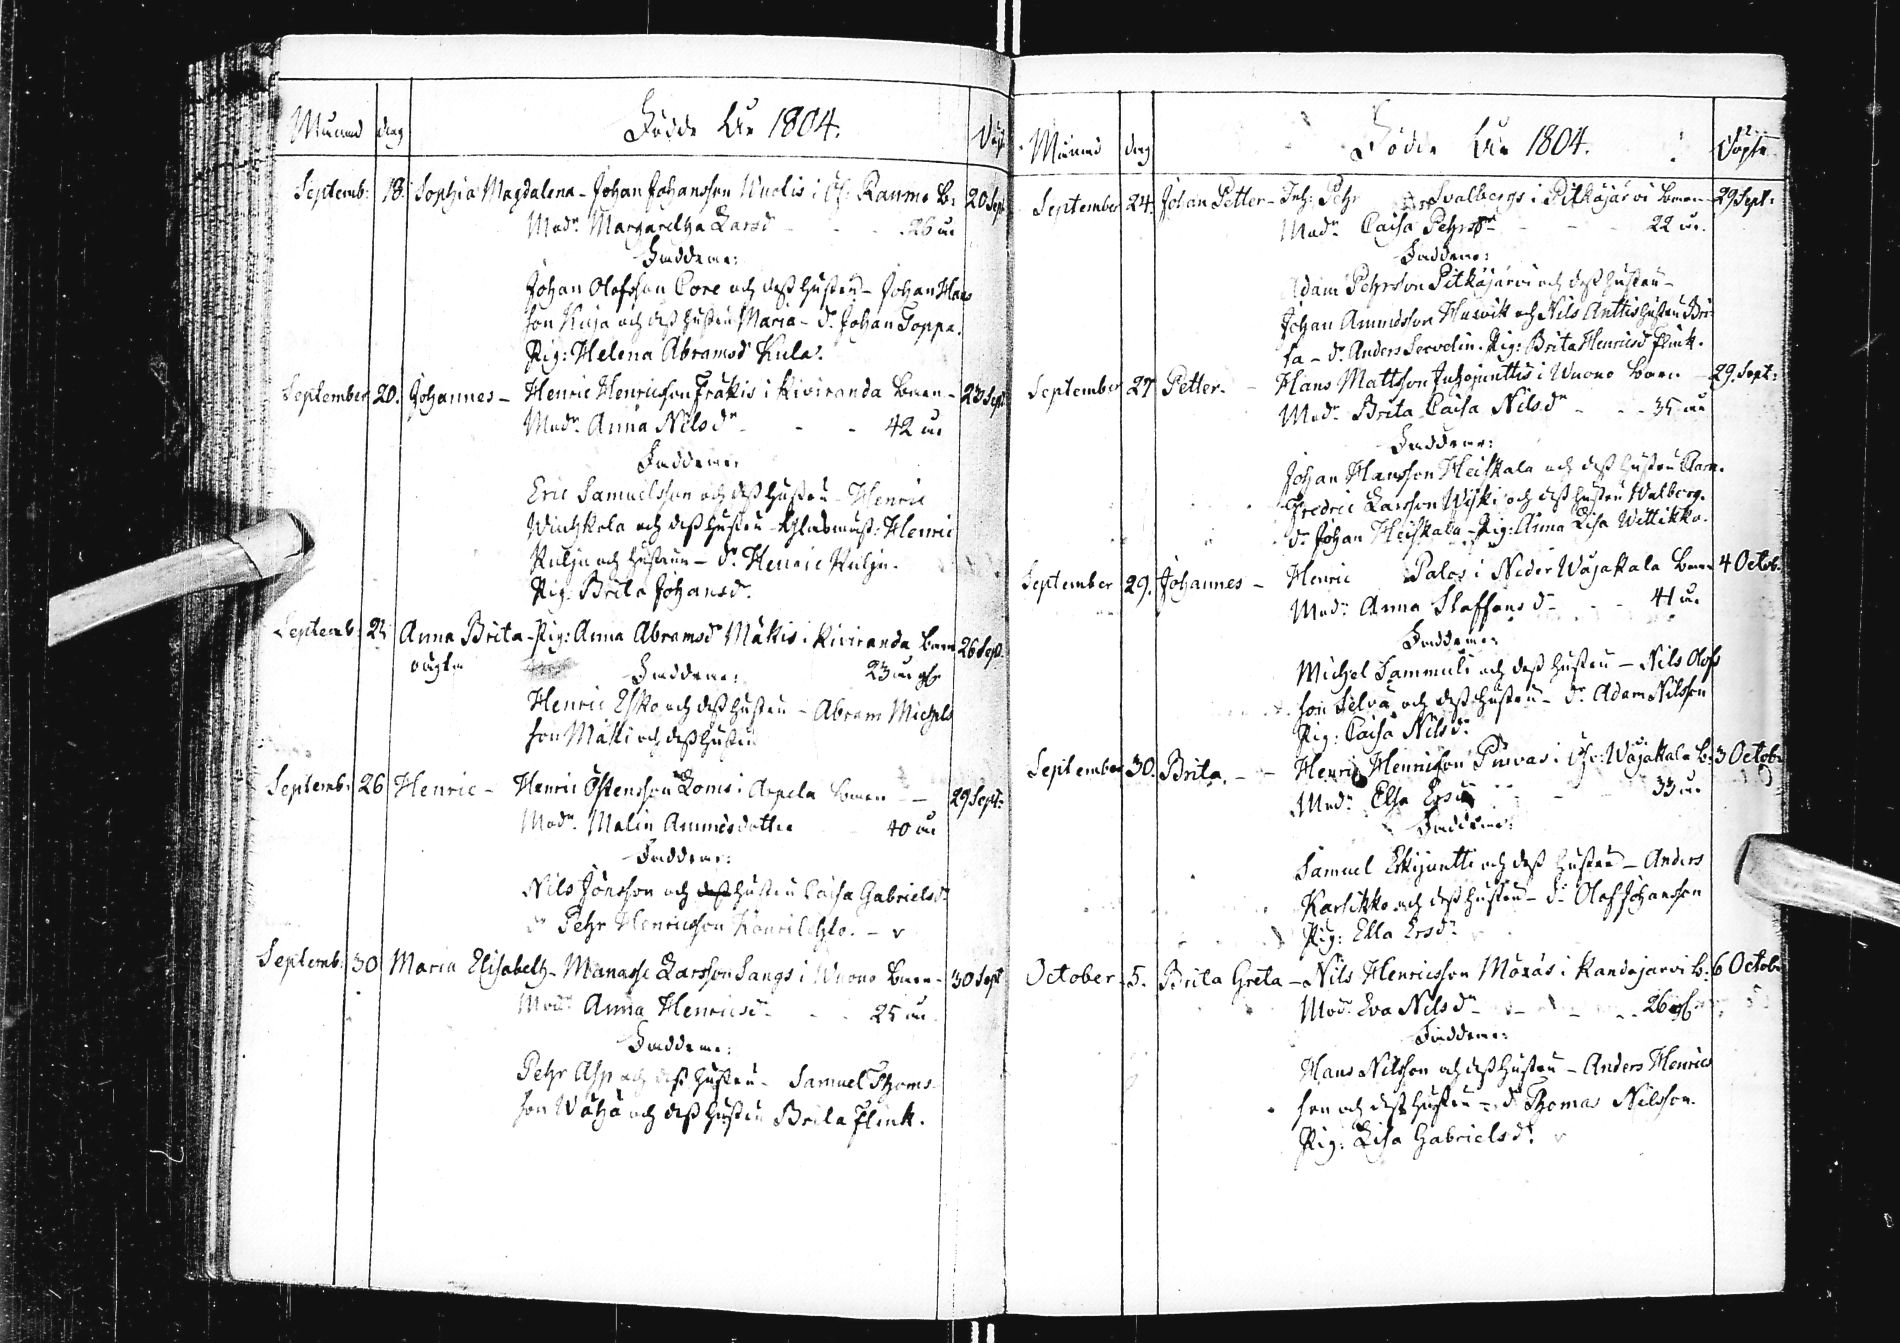 Månad dag Födde År 1804. Döpt
Septemb: 18. Sophia Magdalena - Johan Johansson Nuolis i Ö: Raumo B: 20 Sept
Modr. Margaretha Larsdr - - - 26 år
Faddrar:
Johan Olofsson Core och dess hustru - Johan Hans
son Kuja och dess hustru Maria - dr. Johan Toppa.
Pig: Helena Abramsdr Kula.
September 20. Johannes - Henric Henricsson Frakis i Kiviranda barn - 23 Sept
Modr. Anna Nilsdr - - - 42 år
Faddrar:
Eric Samuelsson och dess hustru - Henric
och dess hustru - Henric
Kulju och hustrun - dr. Henric Kulju.
Pig: Brita Johansdr.
Septemb: Anna Brita - Pig: Anna Abramsdr Mäkis i Kiviranda barn 26 Sept.
oägta
Faddrar: 23 år
Henric Esko och dess hustru - Abram Michels
son Mäki och dess hustru
Septemb: 26 Henric - Henric Östensson Loms i Arpela barn - - 29 Sept:
Modr. Malin Ammesdotter 40 år
Faddrar:
Nils Jönsson och dess hustru Caisa Gabrielsdr
dr Pehr Henricsson - v
Septemb: 30 Maria Elisabeth - Manasse Larsson Sangs i Wuono barn - 30 Sept
Modr Anna Henricsdr - - - 25 år.
Faddrar:
Pehr Asp och dess hustru - Samuel Thoms
son Wähä och dess hustru Brita Flink.
Månad dag Födde År 1804. Döpte
September 24. Johan Petter - Inh: Pehr Svalbergs i Pitkäjärvi barn - 29 Sept:
Modr Caisa Pehrsdr - - - 22 år.
Faddrar:
Adam Pehrsson Pitkäjärvi och dess hustru -
Johan Ammesson Husvik och Nils Anttis hustru Bri-
ta - dr. Anders Servelin. Pig: Brita Henricsdr Flink.
September 27 Petter. - Hans Mattsson Juhojunttis i Wuono barn - 29. Sept:
Modr. Brita Caisa Nilsdr - - - 35 år
Faddrar:
Johan Hansson Heiskala och dess hustru Clara.
Fredric Larsson Wiski och dess hustru Walborg.
dr. Johan Heiskala - Pig: Anna Lisa Wittikko.
September 29. Johannes - Henric Palos i Neder Wojakala barn 4 Octob:
Modr Anna Staffansdr - - - 41 år
Faddrar:
Michel Sammuli och dess hustru - Nils Olofs
son Selvä och dess hustru - dr Adam Nilsson
Pig: Caisa Nilsdr.
September 30. Brita. - - Henric Henricsson Pusvas i Ö: Wojakala B: 3 Octob:
Modr. Elsa Ersdr - - - 33 år
Faddrar:
Samuel Eskijuntti och dess hustru - Anders
Karhikko och dess hustru - dr Olof Johansson
Pig: Ella Ersdr
October 5. Brita Greta - Nils Henricsson Moxäs i Kandojarvi B: 6 Octob:
Modr Eva Nilsdr - - - 26
Faddrar:
Hans Nilsson och dess hustru - Anders Henrics
son och dess hustru - dr Thomas Nilsson.
Pig: Lisa Gabrielsdr. v